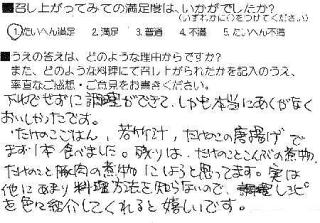 ■召し上がってみての満足度は、いかがでしたか?
(いずれかに○をつけてください)
1.たいへん満足 2.満足 3.普通 4.不満 5.たいへん不満
■うえの答えは、どのような理由からですか?
また、どのような料理にて召し上がられたかを記入のうえ、
率直なご感想・ご意見をお書きください。
下ゆでせずに調理ができて、しかも本当にあくがなく
おいしかったです。
たけのこごはん、若竹汁、たけのこの唐揚げで
まず1本食べました。残りは、たけのことこんぶの煮物、
たけのこと豚肉の煮物にしようと思ってます。実は
他にあまり料理方法を知らないので、調理レシピ
を色々紹介してくれると嬉しいです。